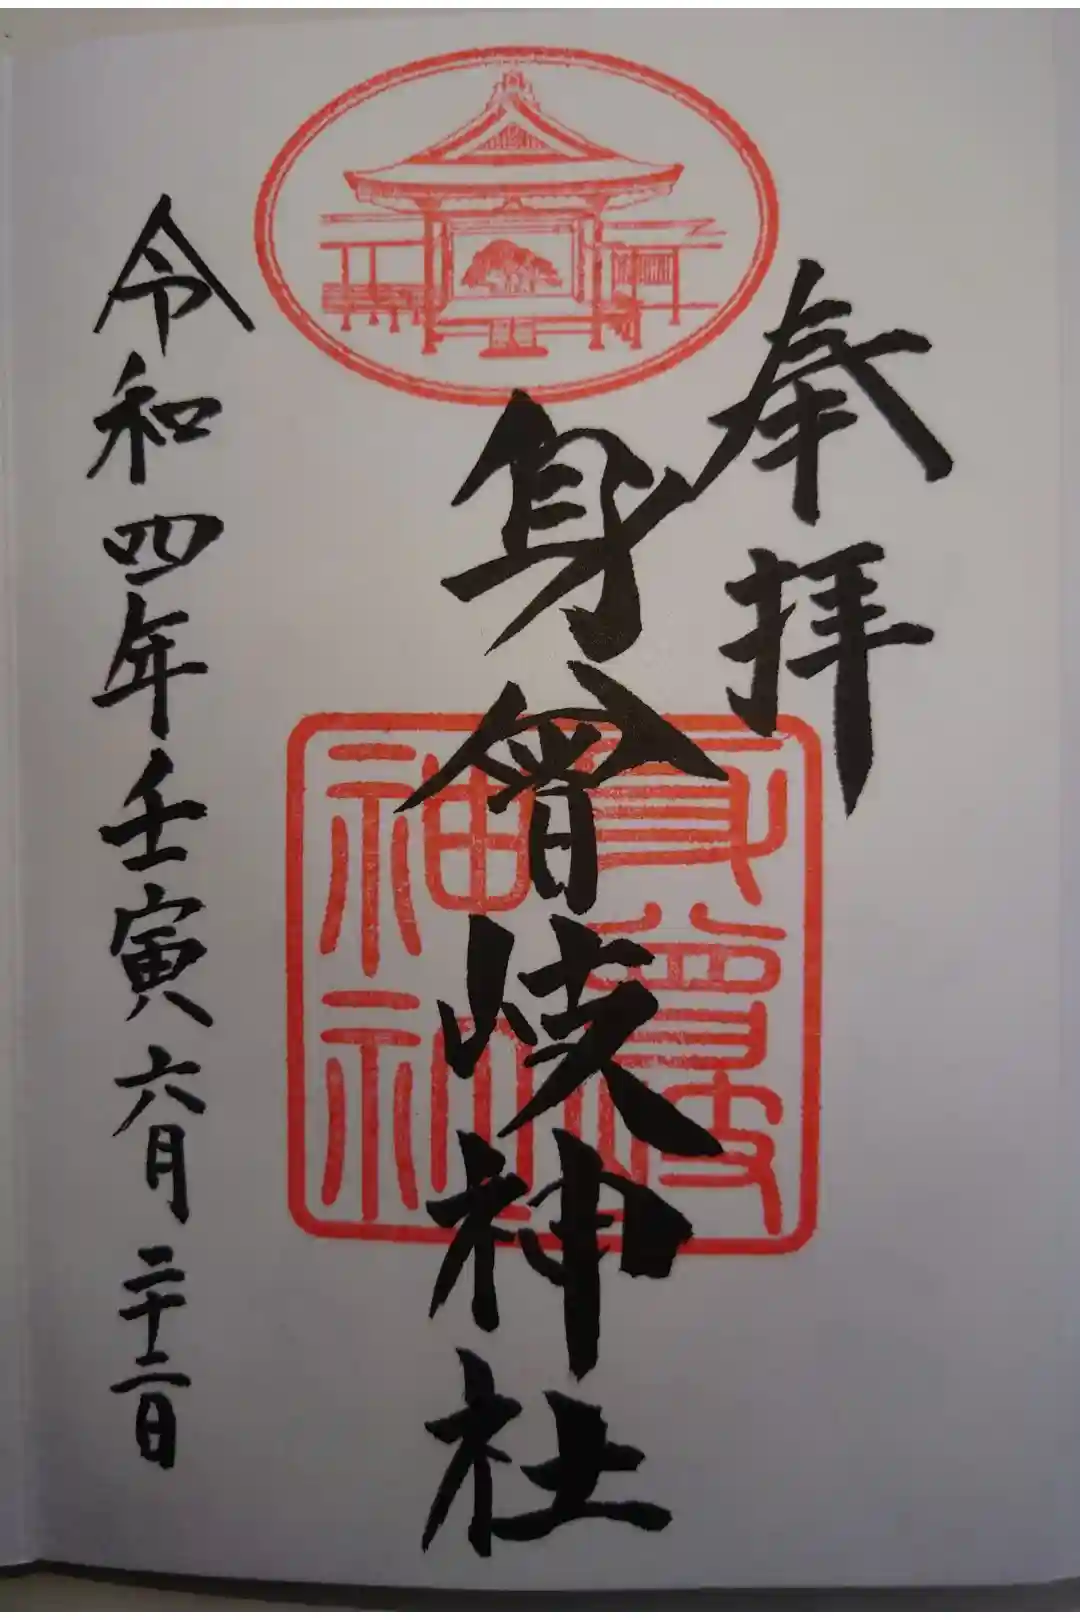 奉拝
身曾岐神社
令和四年壬寅六月二十二日
身曾岐
神社